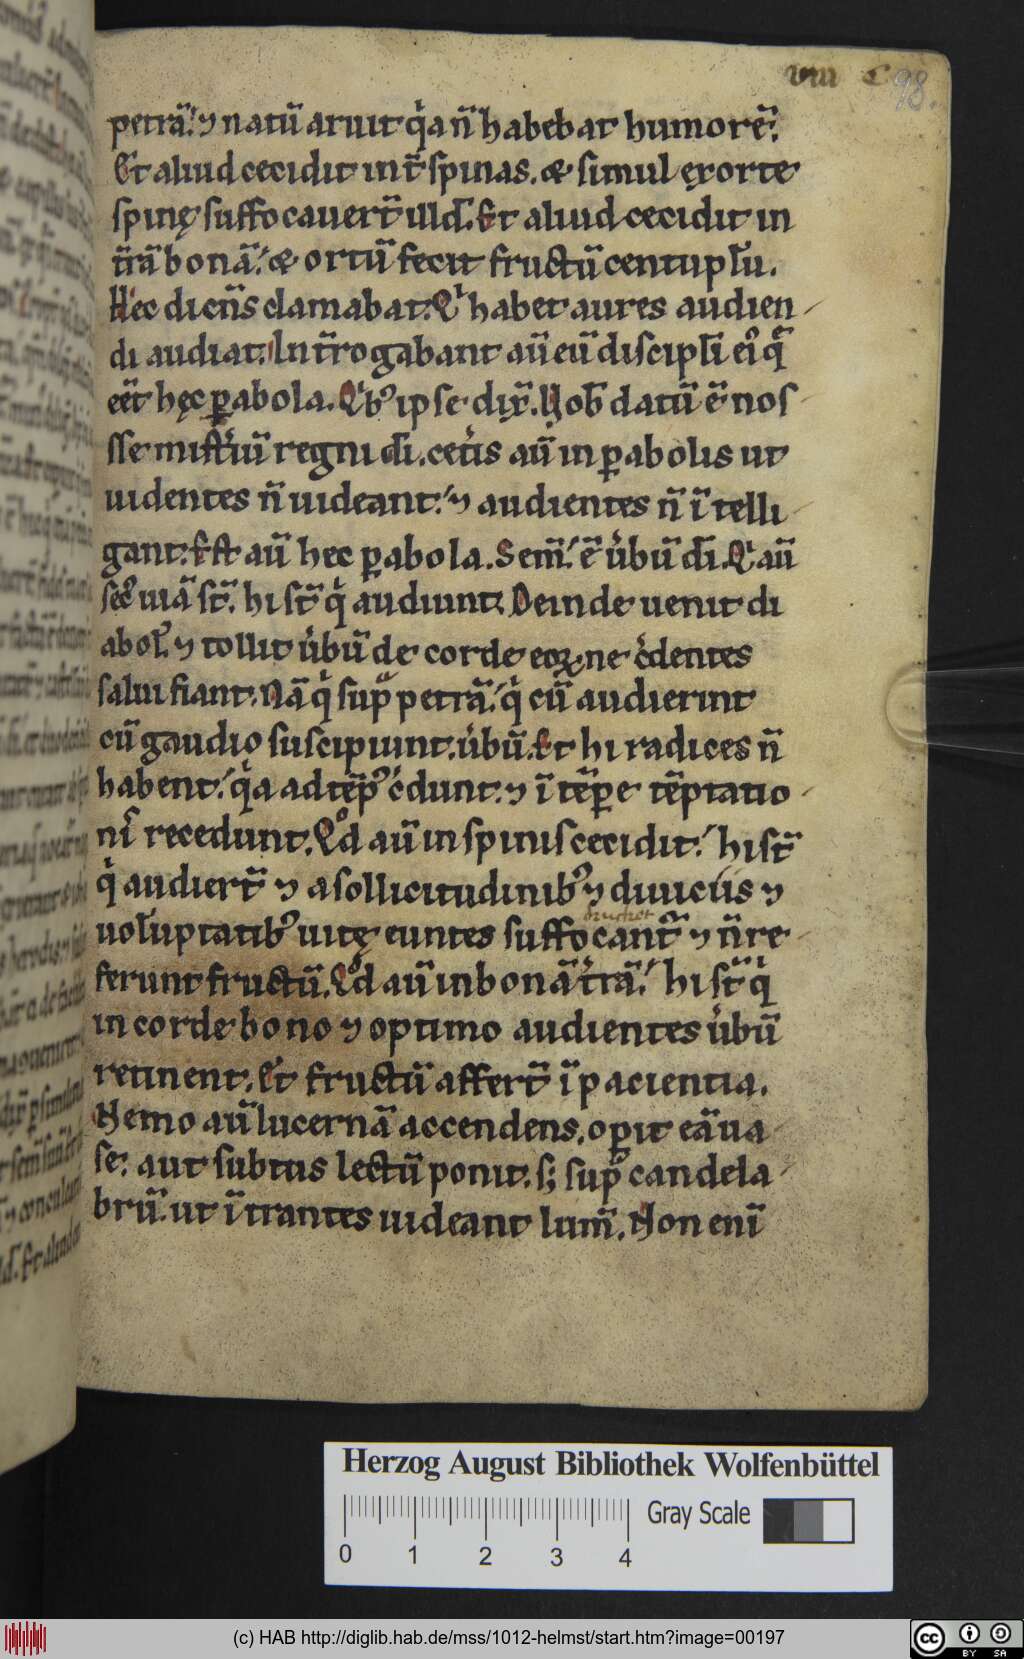 viii C 98.
petrã. ⁊ natũ aruit qͥa ñ habebat humorẽ.
Et aliud cecidit int̃ spinas. & simul exorte
spinę suffocauert̃ illđ. Et aliud cecidit in
t̃rã bonã. & ortũ fecit fructũ centuplũ.
Hec dicñs clamabat. Qͥ habet aures audien
di audiat. Int̃rogabant aũ eũ discipľi eiꝰ q̃
eẽt hęc ꝑabola. Qͥbꝰ ipse dix̃. Uob̃ datũ ẽ nos
sse mist̾iũ regni dĩ. cet̾is aũ in ꝑabolis ut
uidentes ñ uideant. ⁊ audientes ñ ĩtelli
gant. Est aũ hec ꝑabola. Sem̃. ẽ ůbũ dĩ. Qͥ aũ
sec̾ uiã st̃. hi st̃ qͥ audiunt. Deinde uenit di
abol̃. ⁊ tollit ůbũ de corde eoꝝ ne c̾dentes
salui fiant. Nã qͥ sup̃ petrã. qͥ cũ audierint
cũ gaudio suscipiunt. ůbũ. Et hi radices ñ
habent. qͥa ad tẽpꝰ c̾dunt. ⁊ ĩ tẽꝑe tẽptatio
nĩs recedunt. Qͦd aũ in spinis cecidit. hi st̃
qͥ audiert̃ ⁊ a sollicitudinibꝰ ⁊ diuiciis ⁊
uoľuptatibꝰ uitę euntes suffocant̃ ⁊ ñ re
ferunt fructũ. Qͦd aũ in bonã t̾rã. hi st̃ qͥ
in corde bono ⁊ optimo audientes ůbũ
retinent. Et fructũ affert̃ ĩ pacientia.
Nemo aũ lucernã accendens. oꝑit eã ua
se. aut subtus lectũ ponit. s; sup̃ candela
brũ. ut ĩtrantes uideant lum̃. Non enĩ
Herzog August Bibliothek Wolfenbüttel
Gray Scale
0 1 2 3 4
(c) HAB http://diglib.hab.de/mss/1012-helmst/start.htm?image=00197
cc BY SA